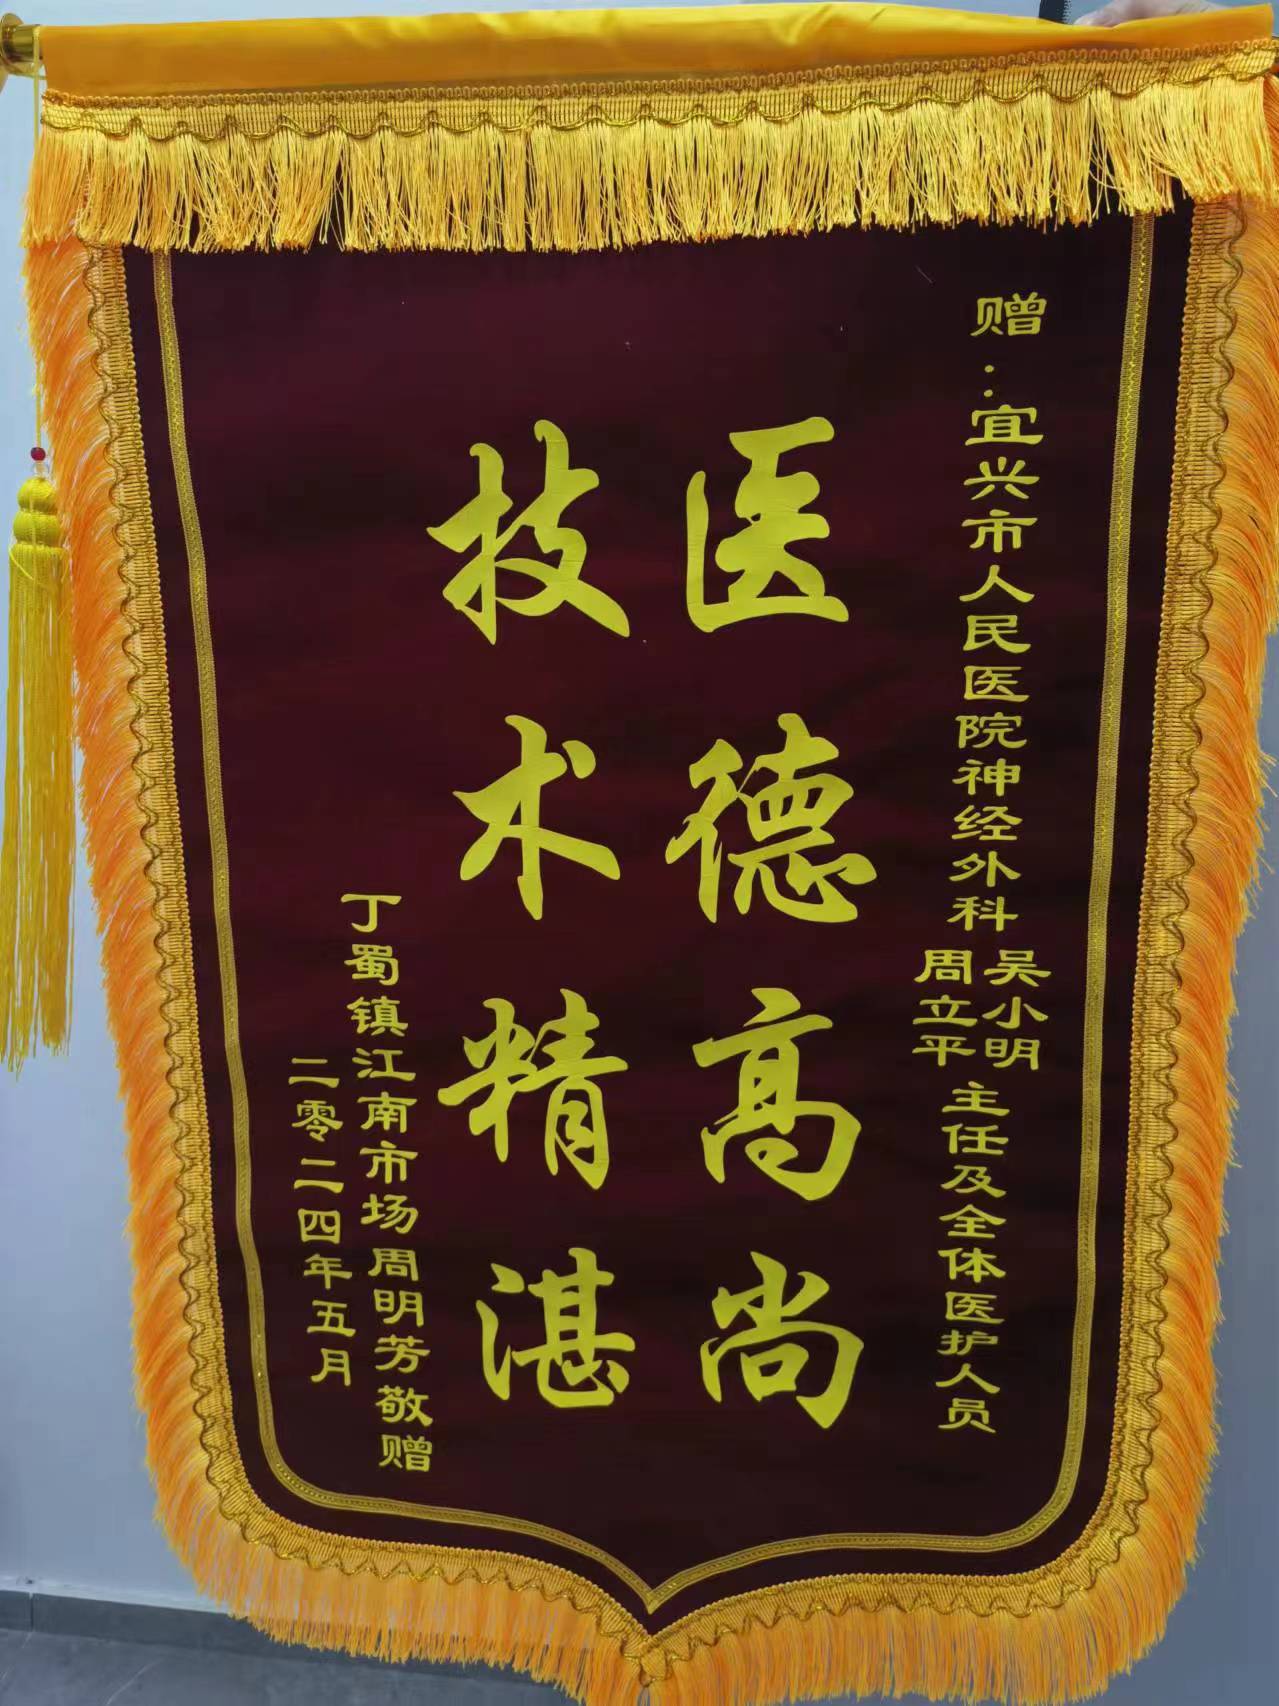 赠：宜兴市人民医院神经外科
吴小明
周立平
主任及全体医护人员
医德高尚
技术精湛
丁蜀镇江南市场周明芳敬赠
二零二四年五月